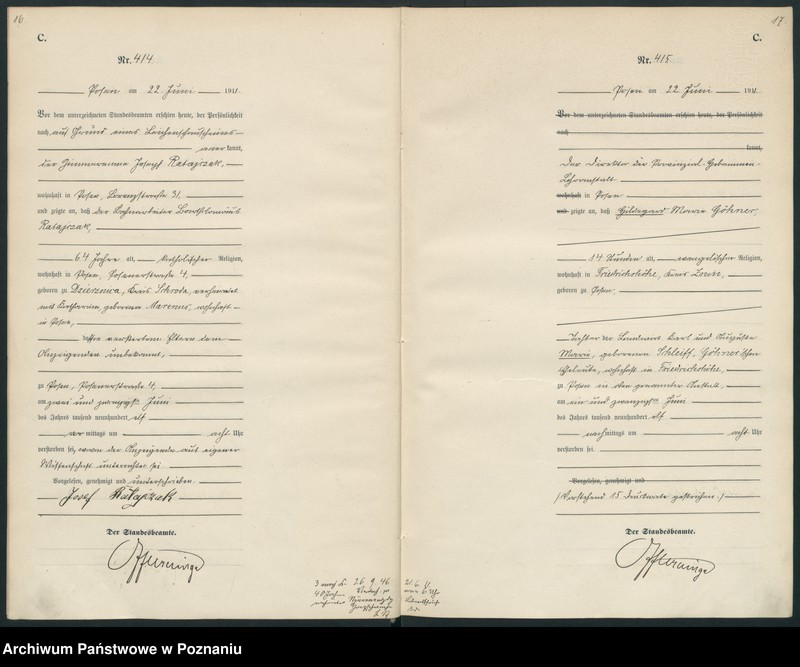 16
C.
Nr. 414.
Posen am 22 Juni 1911.
Vor dem unterzeichneten Standesbeamten erschien heute, der Persönlichkeit
nach, auf Grund eines Leichenschauscheines
kannt,
der Zimmermann Josef Ratajczak,
wohnhaft in Posen, 31,
und zeigte an, daß der Bartholomäus
Ratajczak,
64 Jahre alt, katholischer Religion,
wohnhaft in Posen, Posenerstraße 4,
geboren zu Dzierznica, Kreis Schroda, verheiratet
mit Katharina, geborenen, wohnhaft
in Posen,
Eltern dem
Anzeigenden unbekannt,
zu Posen, Posenerstraße 4,
am zwei und zwanzigsten Juni
des Jahres tausend neunhundert elf
vormittags um acht Uhr
verstorben sei, wovon der Anzeigende aus eigener
Wissenschaft unterrichtet sei
Vorgelesen, genehmigt und unterschrieben
Josef Ratajczak
Der Standesbeamte.
26. 9. 46
17
C.
Nr. 415.
Posen am 22 Juni 1911.
Vor dem unterzeichneten Standesbeamten erschien heute, der Persönlichkeit
nach
kannt,
Der Direktor der Provinzial-Hebammen-
Lehranstalt
wohnhaft in Posen
und zeigte an, daß Hildegard Maria Göhner,
14 Stunden alt, evangelischer Religion,
wohnhaft in Friedrichshöhe, Kreis
geboren zu Posen,
Tochter der Landwirt Karl und Auguste
Marie, geborenen Schleiff, Göhner'schen
Eheleute, wohnhaft in Friedrichshöhe,
zu Posen in der genannten Anstalt,
am ein und zwanzigsten Juni
des Jahres tausend neunhundert elf
nachmittags um acht Uhr
verstorben sei.
Vorgelesen, genehmigt und
(Vorstehend 15 Druckworte gestrichen.)
Der Standesbeamte.
Archiwum Państwowe w Poznaniu